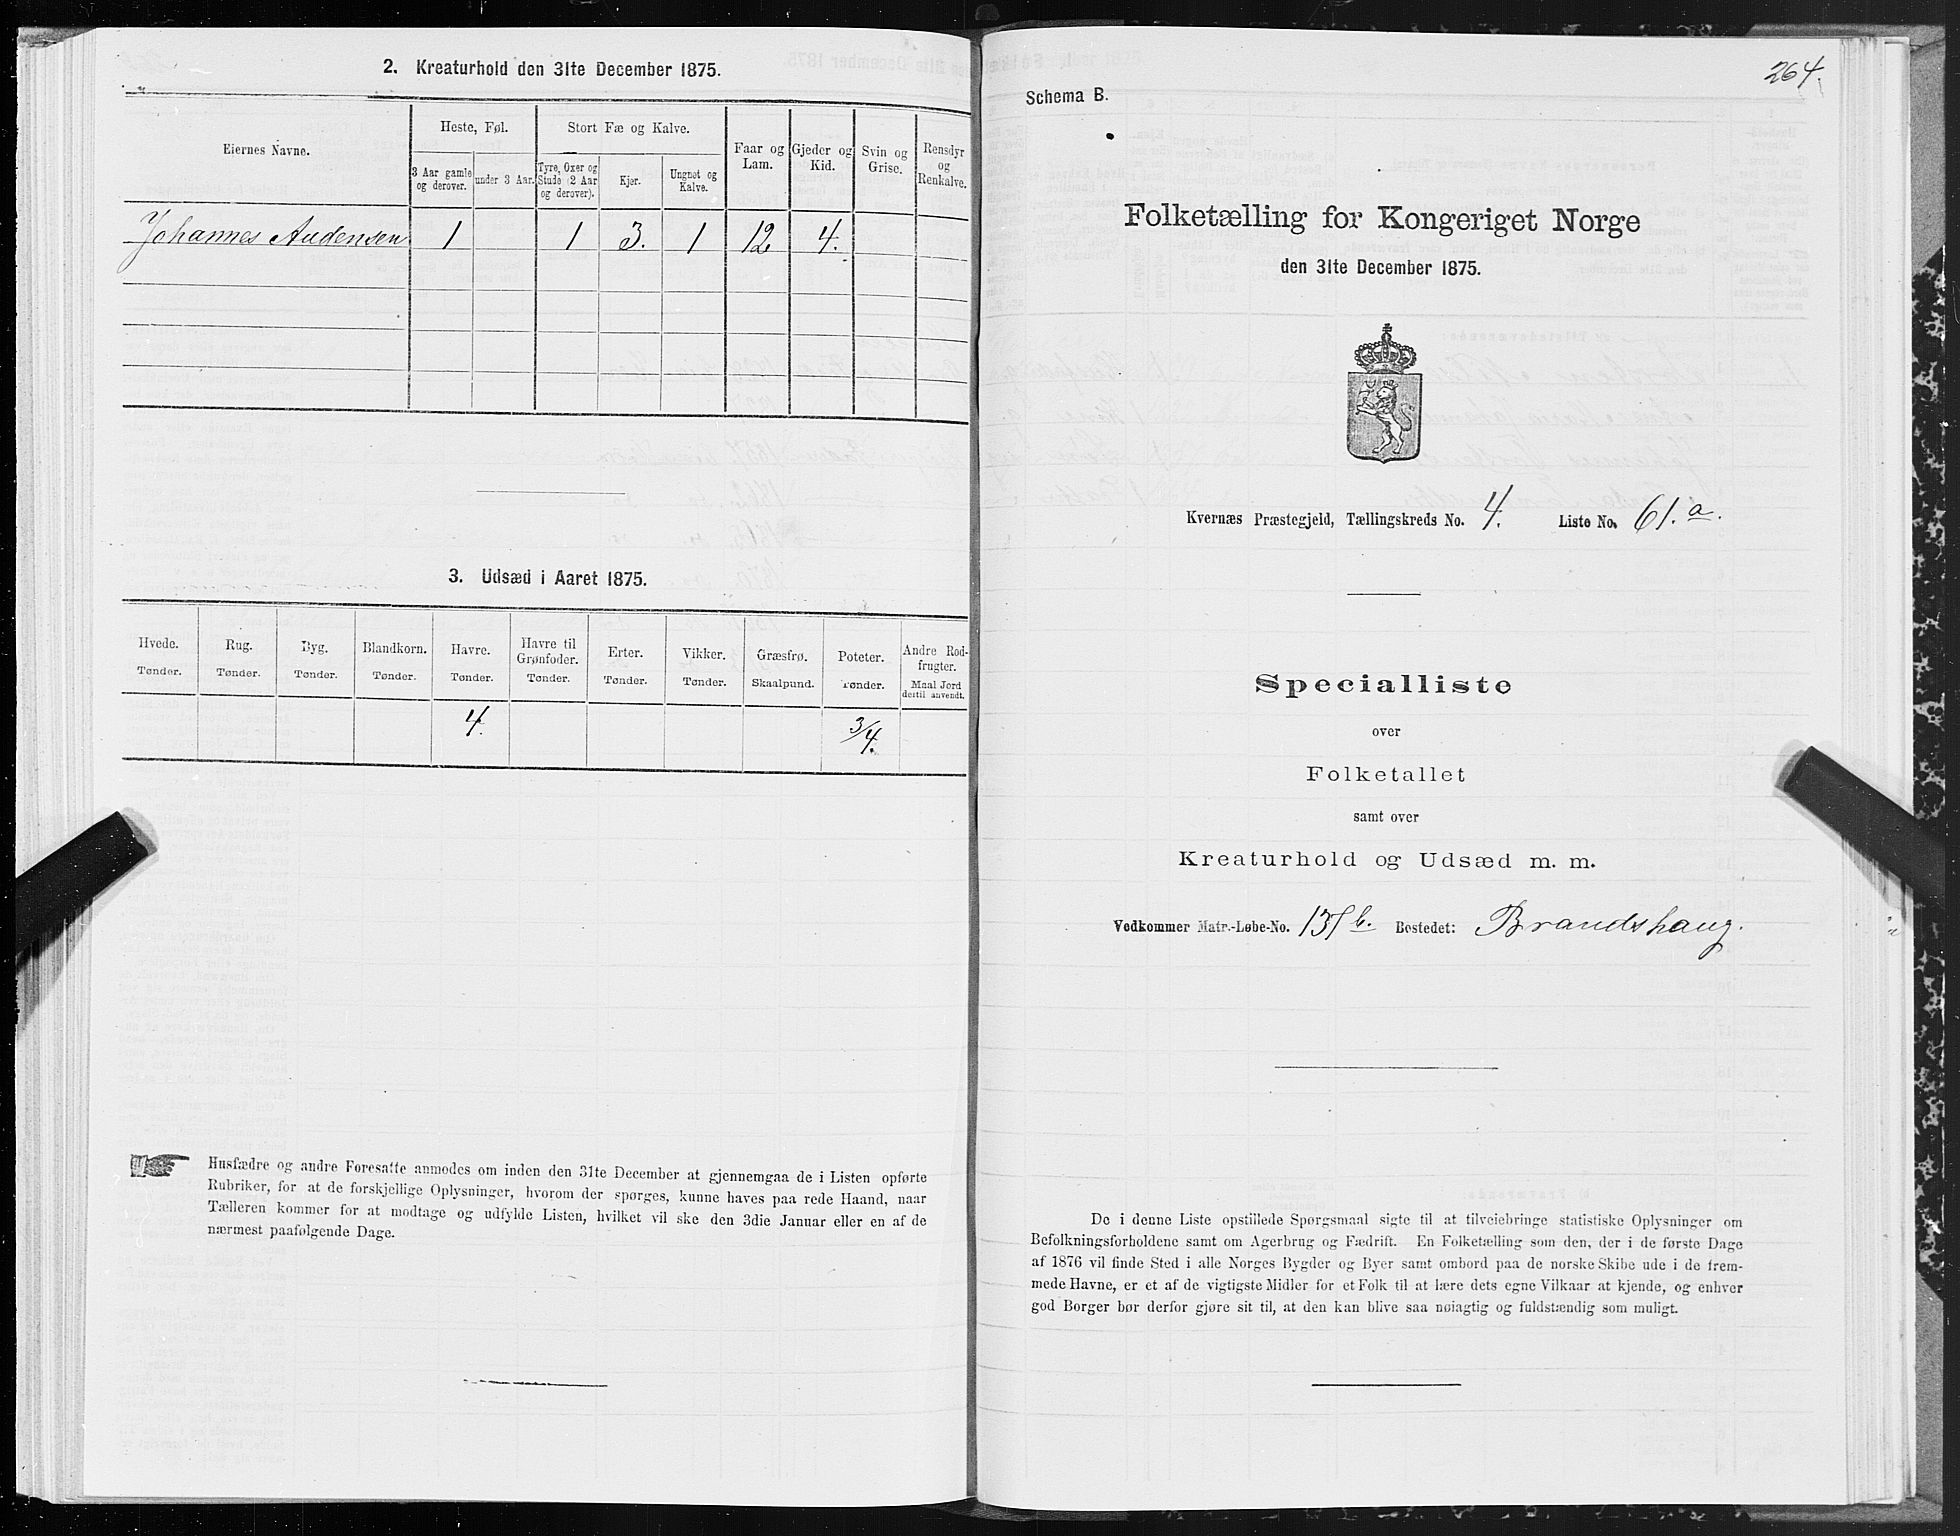 2. Kreaturhold den 31te December 1875.
Eiernes Navne.
Heste, Føl.
Stort Fæ og Kalve.
Faar og Lam.
Gjeder og Kid.
Svin og Grise.
Rensdyr og Renkalve.
3 Aar gamle og derover.
under 3 Aar.
Tyre, Oxer og Stude (2 Aar og derover).
Kjør.
Ungnøt og Kalve.
Johannes Audensen 1 1 3. 1 12. 4.
3. Udsæd i Aaret 1875.
Hvede. Tønder.
Rug. Tønder.
Byg. Tønder.
Blandkorn. Tønder.
Havre. Tønder.
Havre til Grønfoder. Tønder.
Erter. Tønder.
Vikker. Tønder.
Græsfrø. Skaalpund.
Poteter. Tønder.
Andre Rodfrugter. Maal Jord dertil anvendt.
4. 3/4.
Husfædre og andre Foresatte anmodes om inden den 31te December at gjennemgaa de i Listen opførte
Rubriker, for at de forskjellige Oplysninger, hvorom der spørges, kunne haves paa rede Haand, naar
Tælleren kommer for at modtage og udfylde Listen, hvilket vil ske den 3die Januar eller en af de
nærmest paafølgende Dage.
264.
Schema B.
Folketælling for Kongeriget Norge
den 31te December 1875.
Kvernæs Præstegjeld, Tællingskreds No. 4. Liste No. 61.a.
Specialliste
over
Folketallet
samt over
Kreaturhold og Udsæd m. m.
Vedkommer Matr.-Løbe-No. 137b. Bostedet: Brandshaug.
De i denne Liste opstillede Spørgsmaal sigte til at tilveiebringe statistiske Oplysninger om
Befolkningsforholdene samt om Agerbrug og Fædrift. En Folketælling som den, der i de første Dage
af 1876 vil finde Sted i alle Norges Bygder og Byer samt ombord paa de norske Skibe ude i de frem-
mede Havne, er et af de vigtigste Midler for et Folk til at lære dets egne Vilkaar at kjende, og enhver
god Borger bør derfor gjøre sit til, at den kan blive saa nøiagtig og fuldstændig som muligt.